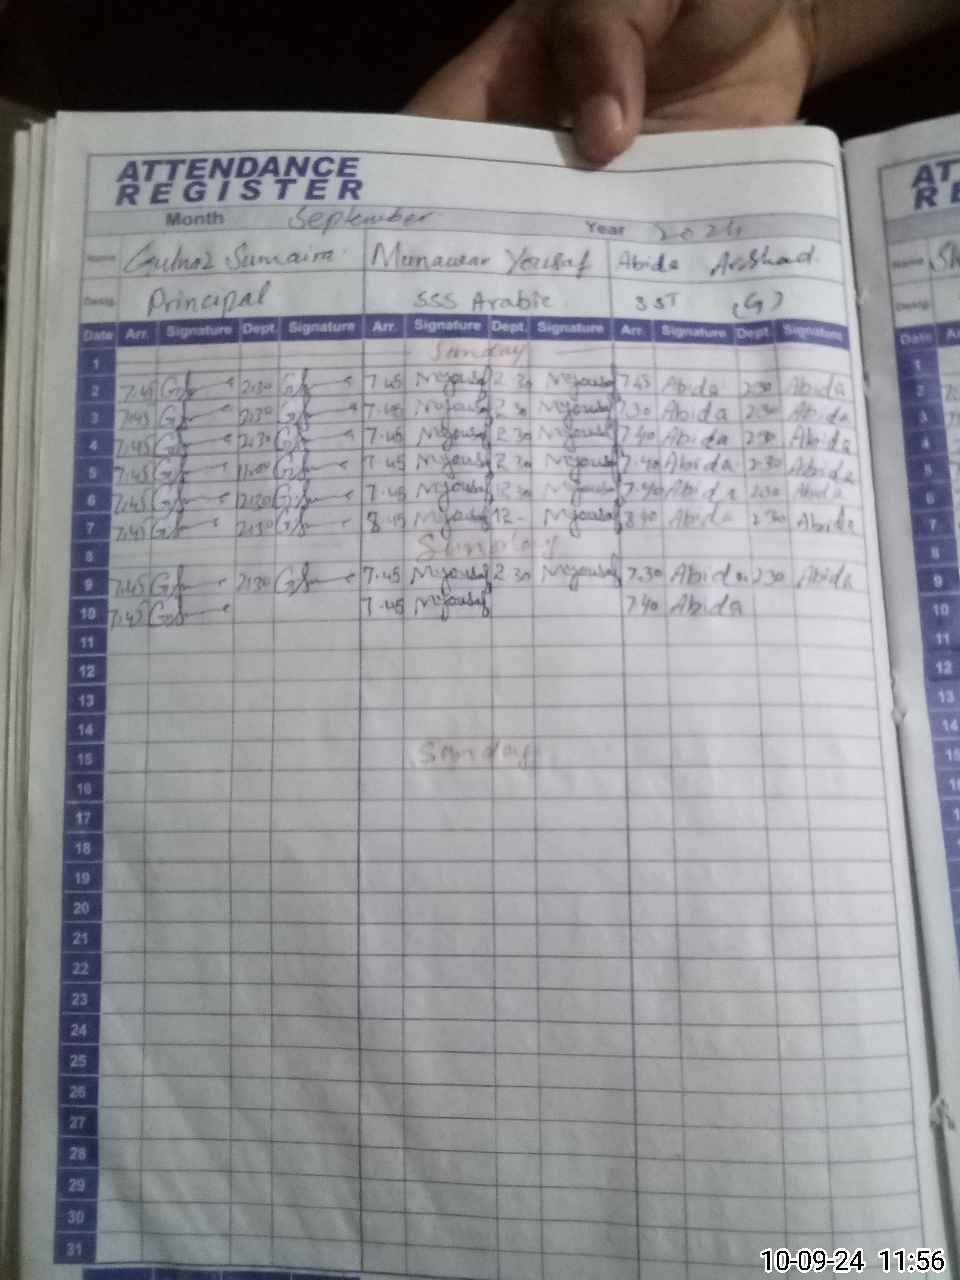 ATTENDANCE
REGISTER
Month September Year 2024
Name Gulnaz Sumaira Munawar Yousaf Abida Arshad
Desig. Principal SSS Arabic SST (G)
Date Arr. Signature Dept. Signature Arr. Signature Dept. Signature Arr. Signature Dept. Signature
1 Sunday
2 7.45 2:30 7.45 MYousaf 2.30 MYousaf 7.45 Abida 2.30 Abida
3 7.45 2:30 7.45 MYousaf 2.30 MYousaf 7.30 Abida 2.30 Abida
4 7.45 2:30 7.45 MYousaf 2.30 MYousaf 7.40 Abida 2.30 Abida
5 7.45 7.45 MYousaf 2.30 MYousaf 7.40 Abida 2.30 Abida
6 7.45 2:30 7.45 MYousaf 2.30 MYousaf 7.40 Abida 2.30 Abida
7 7.45 2:30 8.45 MYousaf 12 - MYousaf Abida 2.30 Abida
8 Sunday
9 7.45 2:30 7.45 MYousaf 2.30 MYousaf 7.30 Abida 2.30 Abida
10 7.45 7.45 MYousaf 7.40 Abida
11
12
13
14
15 Sunday
16
17
18
19
20
21
22
23
24
25
26
27
28
29
30
31
10-09-24 11:56